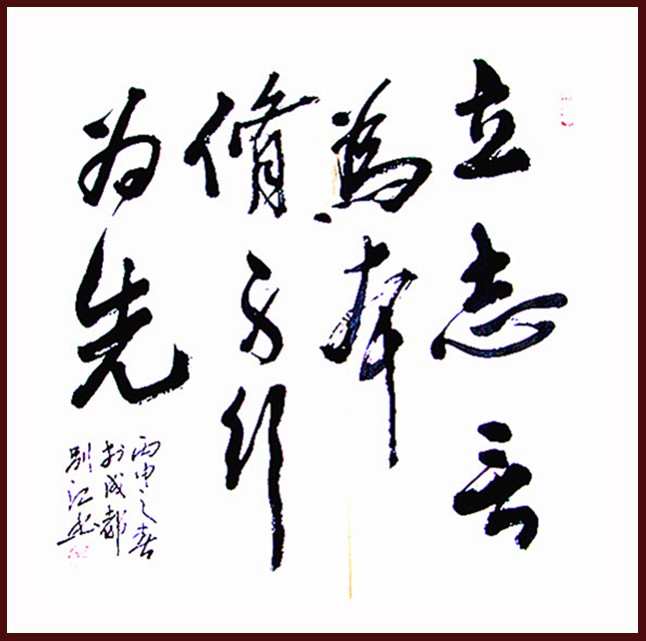 立志言
為本
脩身行
为先
丙申之春
於成都
别江书